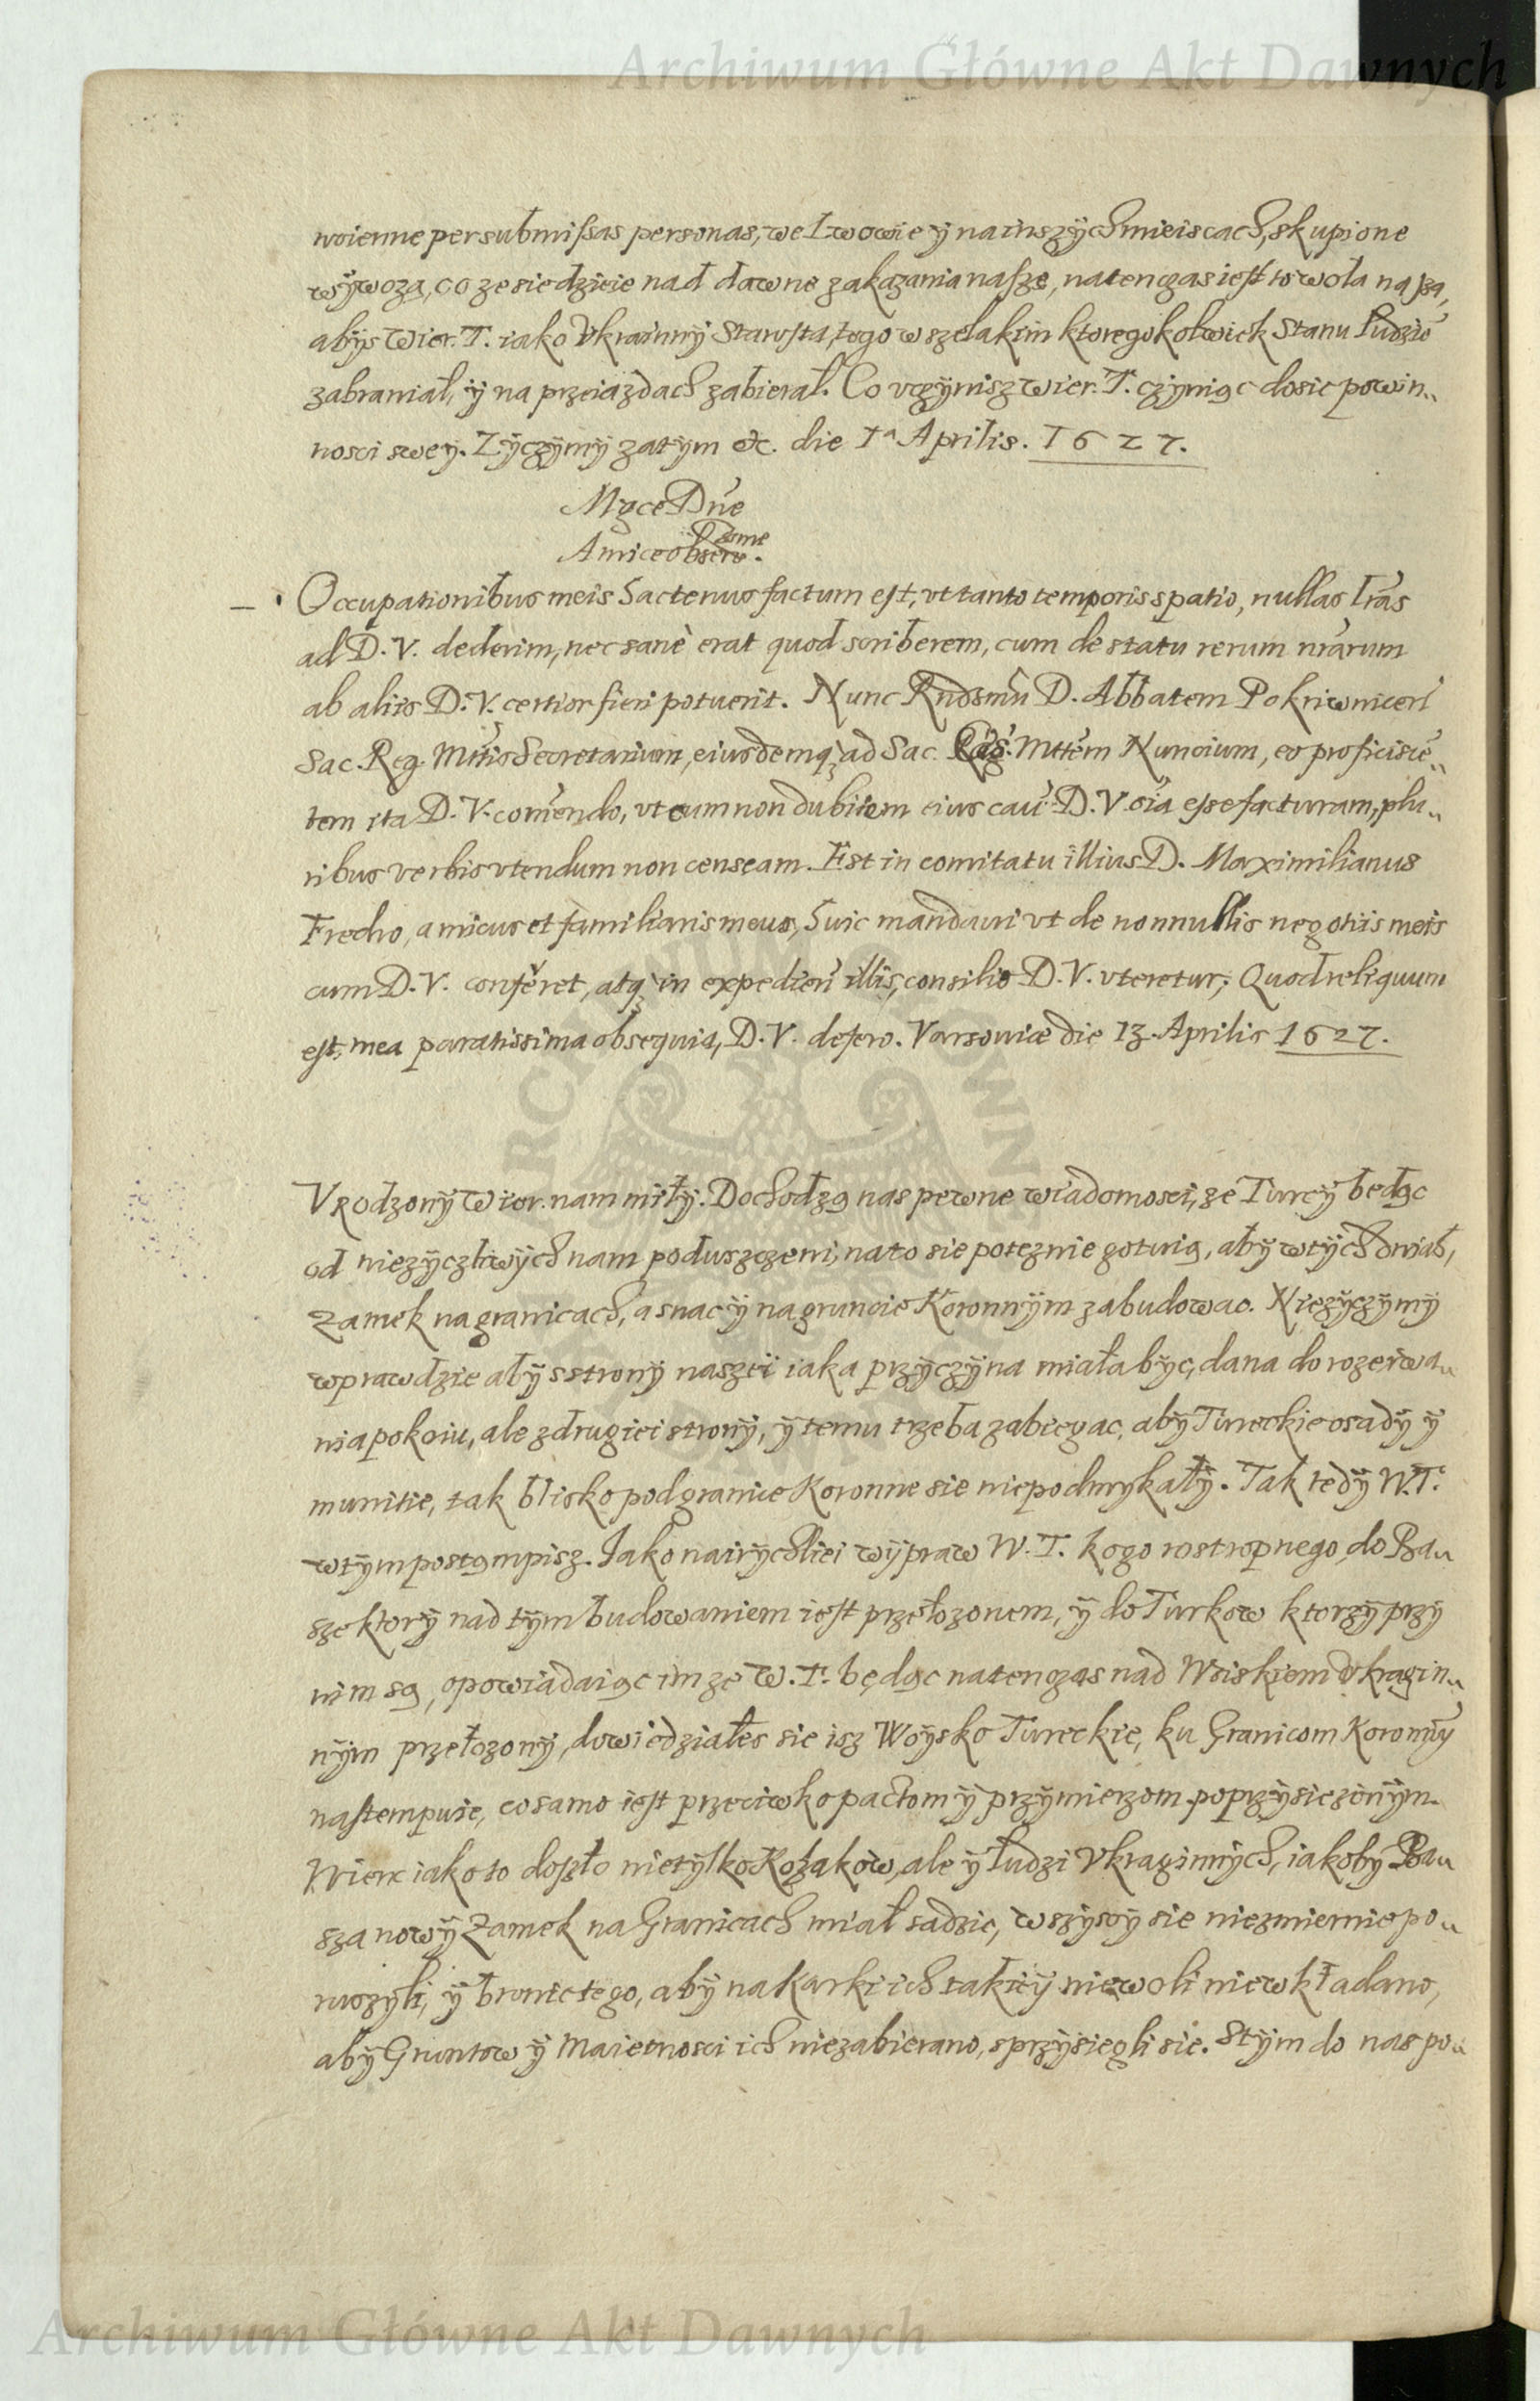 Archiwum Główne Akt Dawnych
woienne per submissas personas, we Lwowie ÿ na inszÿch mieiscach, skupione
wÿwozą, co ze sie dzieie nad dawne zakazania nasze, natenczas iest to wola nasza,
abÿs Wier. T. iako Vkrainnÿ Starosta, tego wszelakim ktoregokolwiek Stanu ludzio
zabraniał, ÿ na przeiazdach zabierał. Co vczÿnisz Wier. T. czÿniąc dosic powin„
nosci sweÿ. Zÿczÿmÿ zatÿm etc. die 1ª Aprilis. 1627.
Mgce Dne
Amice observ. Dome
Occupationibus meis hactenus factum est, vt tanto temporis spatio, nullas lras
ad D. V. dederim, nec sanè erat quod scriberem, cum de statu rerum nrarum
ab aliis D. V. certior fieri potuerit. Nunc Rndsmu D. Abbatem Pokriwnicen
Sac. Reg. Mttis Secretarium, eiusdemq ad Sac. Cæs. Mttem Nuncium, eo proficisce„
tem ita D. V. comendo, vt cum non dubitem eius cau D. V. oia esse facturam, plu„
ribus verbis vtendum non censeam. Est in comitatu illius D. Maximilianus
Fredro, amicus et familiaris meus, huic mandavi vt de nonnullis negotiis meis
cum D. V. conferet, atq in expedien illis, consilio D. V. vteretur; Quod reliquum
est, mea paratissima obsequia, D. V. defero. Varsouiæ die 13. Aprilis 1627.
Vrodzonÿ Wier. nam miłÿ. Dochodzą nas pewne wiadomosci, ze Turcÿ będąc
od niezÿczliwÿch nam poduszczeni, na to sie poteznie gotuią, abÿ w tÿch dniach,
Zamek na granicach, a snac ÿ na gruncie Koronnÿm zabudowac. Niezÿczÿmÿ
wprawdzie abÿ s stronÿ naszeÿ iaka przÿczÿna miała bÿc, dana do rozerwa„
nia pokoiu, ale z drugiei stronÿ, ÿ temu trzeba zabiegac, abÿ Tureckie osadÿ ÿ
munitie, tak blisko pod granice Koronne sie niepodmykałÿ. Tak tedÿ W. T.
w tÿm postąmpisz. Iako nairÿchliei wÿpraw W. T. kogo rostropnego, do Ba„
sze ktorÿ nad tÿm budowaniem iest przełozonem, ÿ do Turkow ktorzÿ przÿ
nim są, opowiadaiąc im ze W. T. będąc natenczas nad Woiskiem Vkrain„
nÿm przełozonÿ, dowiedziałes sie isz Woÿsko Tureckie, ku Granicom Koronnÿ
nastempuie, co samo iest przeciwko pactom ÿ przÿmierzom poprzÿsiezonÿm.
Wiem iako to doszło nietÿlko Kozakow, ale ÿ ludzi Vkrainnÿch, iakobÿ Ba„
sza nowÿ Zamek na Granicach miał sadzic, wszÿscÿ sie niezmiernie po„
ruszÿli, ÿ bronic tego, abÿ na karki ich takieÿ niewoli niewkładano,
abÿ Gruntow ÿ Maietnosci ich niezabierano, sprzÿsiegli sie. S tÿm do nas po„
Archiwum Główne Akt Dawnych